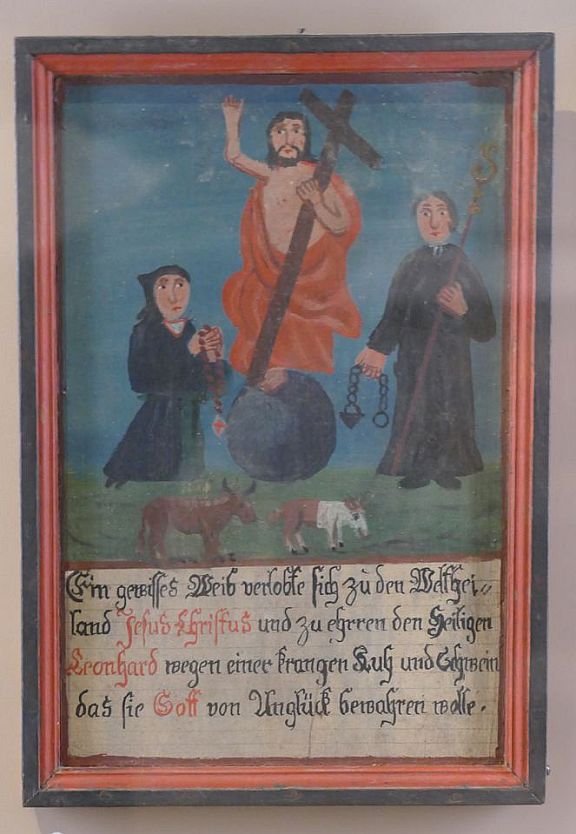 Ein gewisses Weib verlobte sich zu den Welthei=
land Jesus Christus und zu ehrren den Heiligen
Leonhard wegen einer krangen Kuh und Schwein
das sie Gott von Unglück bewahren wolle.